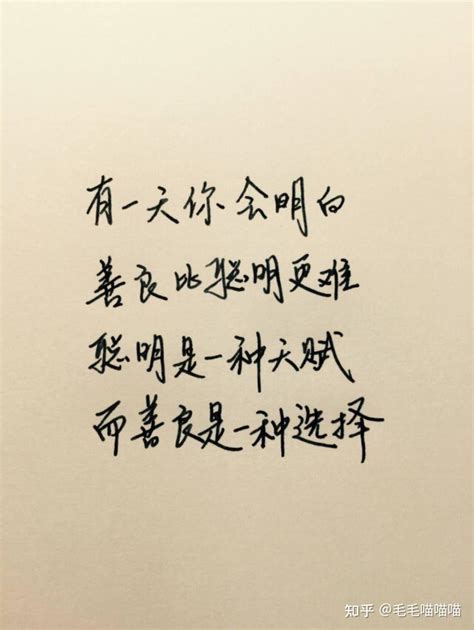 有一天你会明白
善良比聪明更难
聪明是一种天赋
而善良是一种选择
知乎 @毛毛喵喵喵